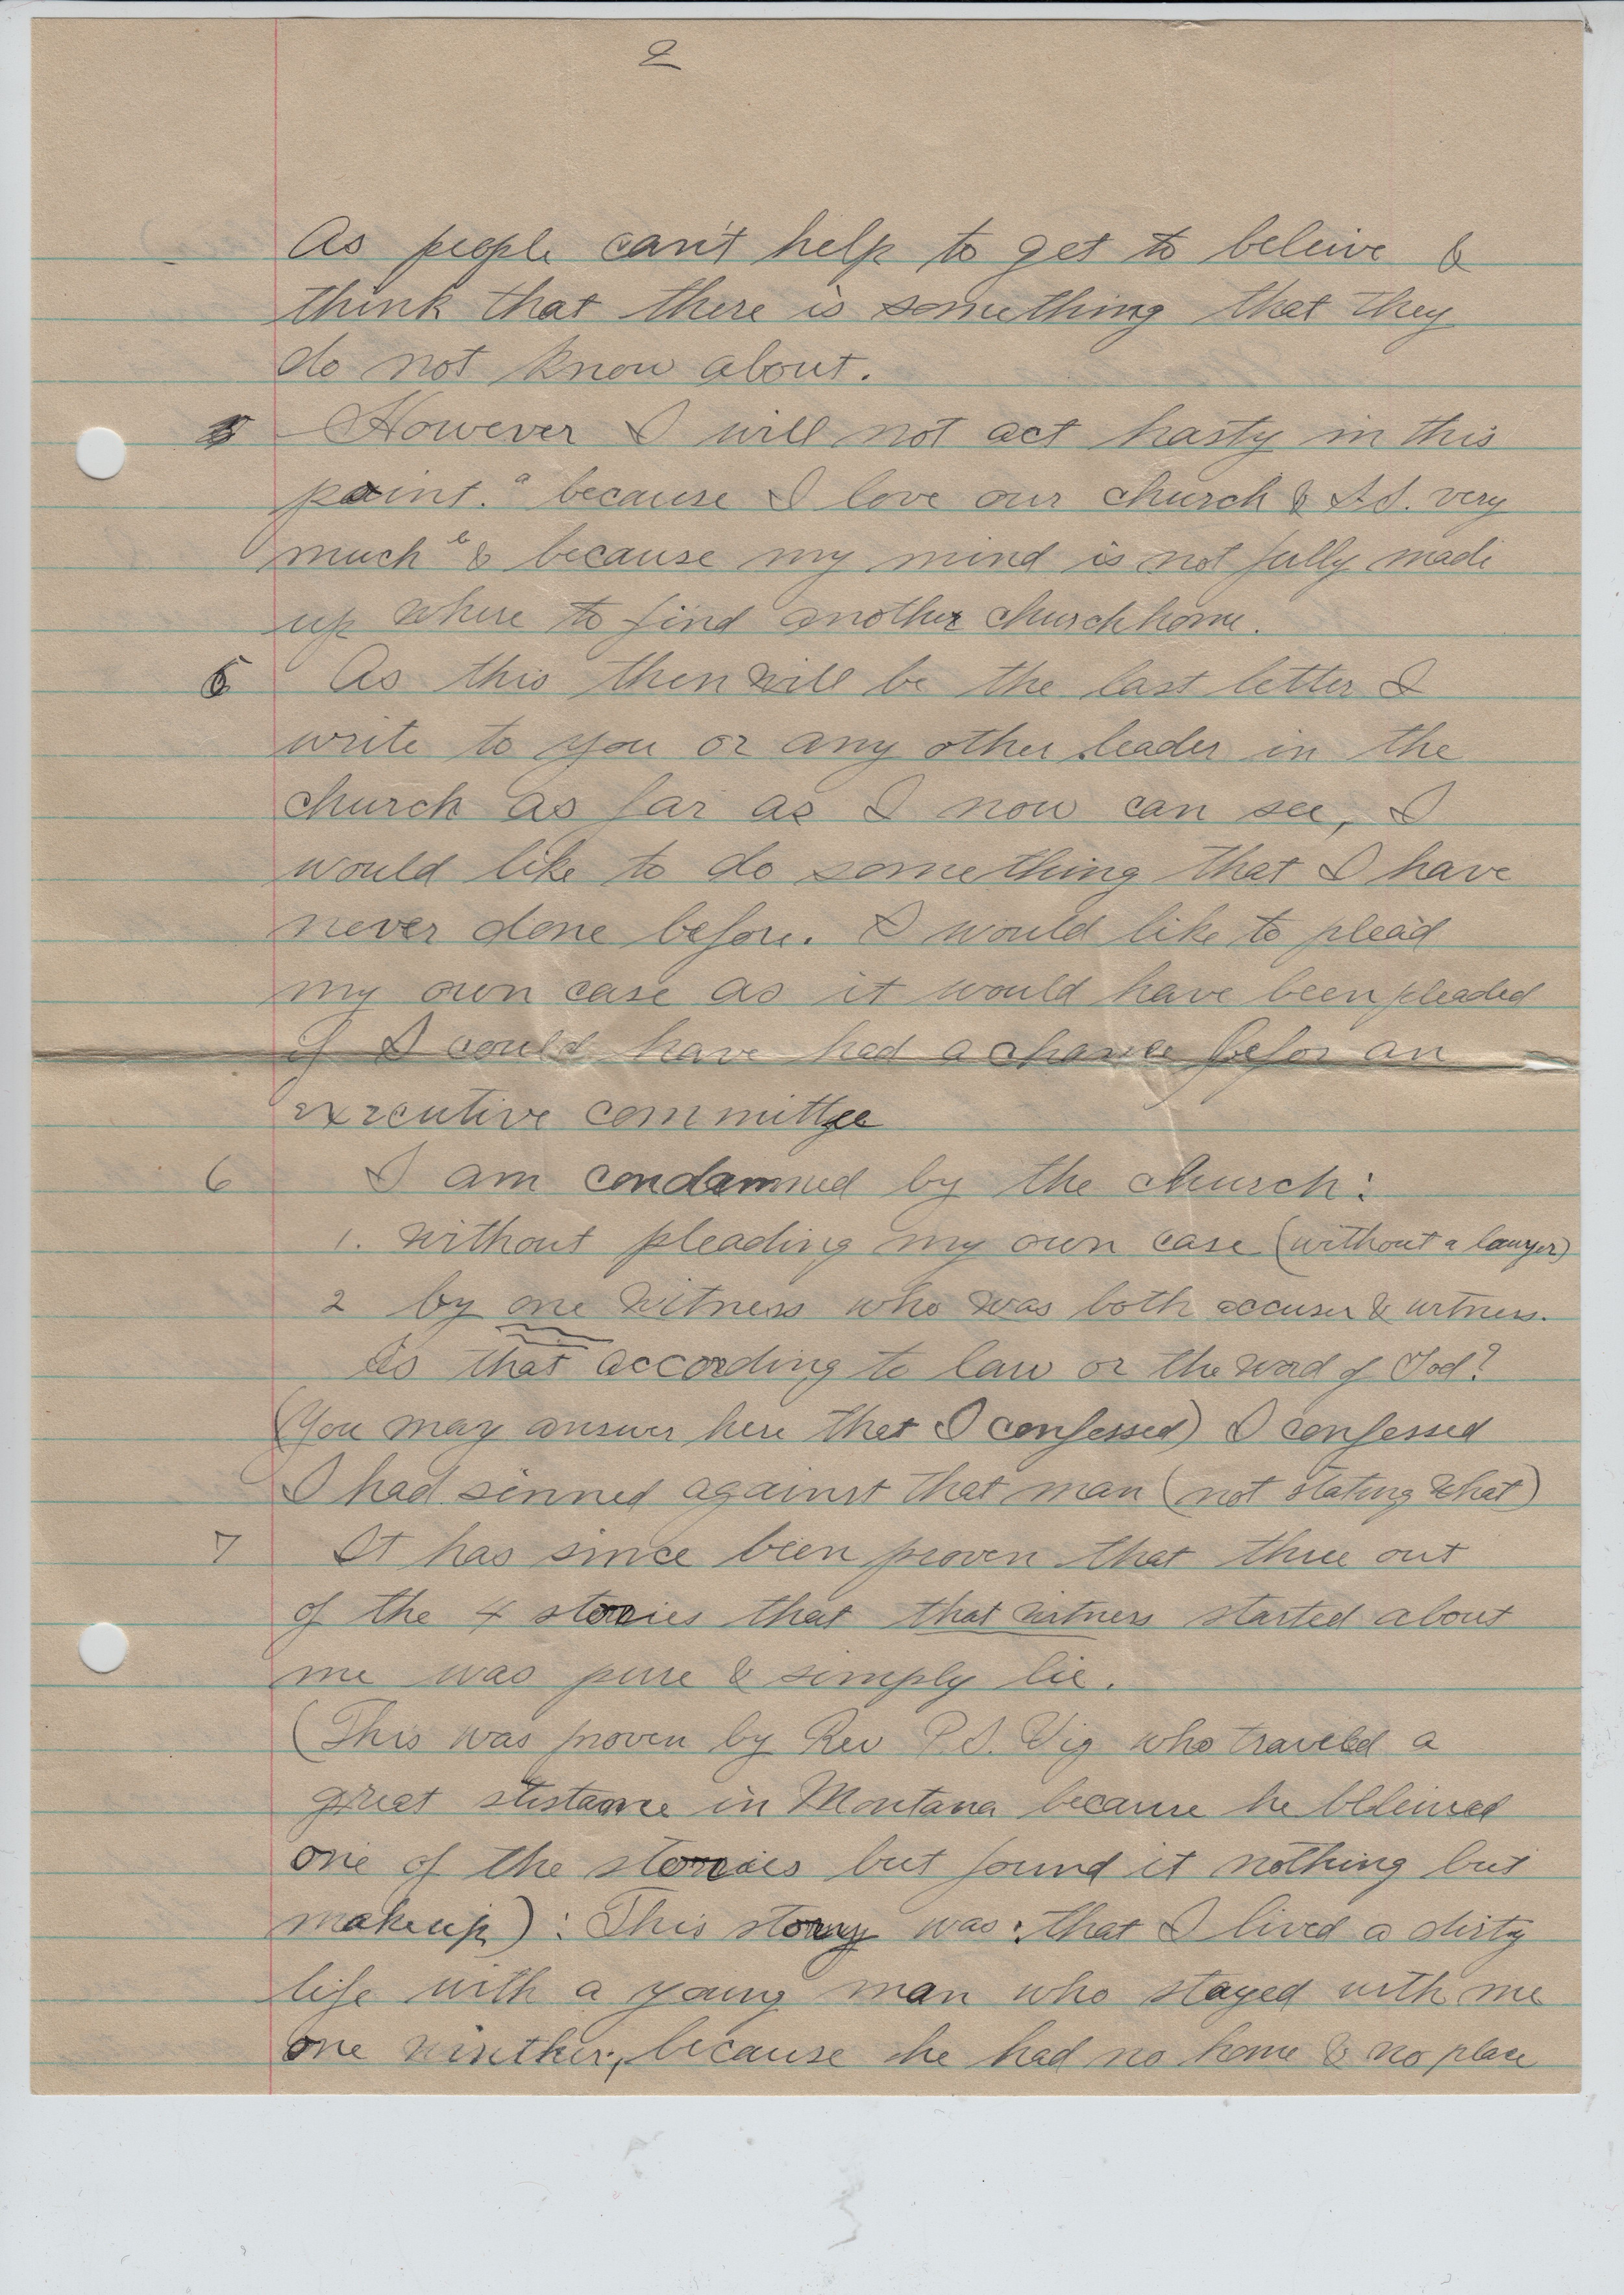 2
As people can't help to get to beleive &
think that there is something that they
do not know about.
However I will not act hasty in this
point. a because I love our church & S.S. very
much b & because my mind is not fully made
up where to find another church home.
5 As this then will be the last letter I
write to you or any other leader in the
church as far as I now can see, I
would like to do something that I have
never done before. I would like to plead
my own case as it would have been pleaded
if I could have had a chance befor an
executive committee
6 I am condamned by the church:
1. without pleading my own case (without a lawyer)
2 by one witness who was both accuser & witness.
Is that according to law or the word of God?
(You may answer here that I confessed) I confessed
I had sinned against that man (not stating what)
7 It has since been proven that three out
of the 4 stories that that witness started about
me was pure & simply lie.
(This was proven by Rev P.S. Vig who traveled a
great distance in Montana because he
one of the stories but found it nothing but
makeup): This story was: that I lived a dirty
life with a young man who stayed with me
one winther, because he had no home & no place